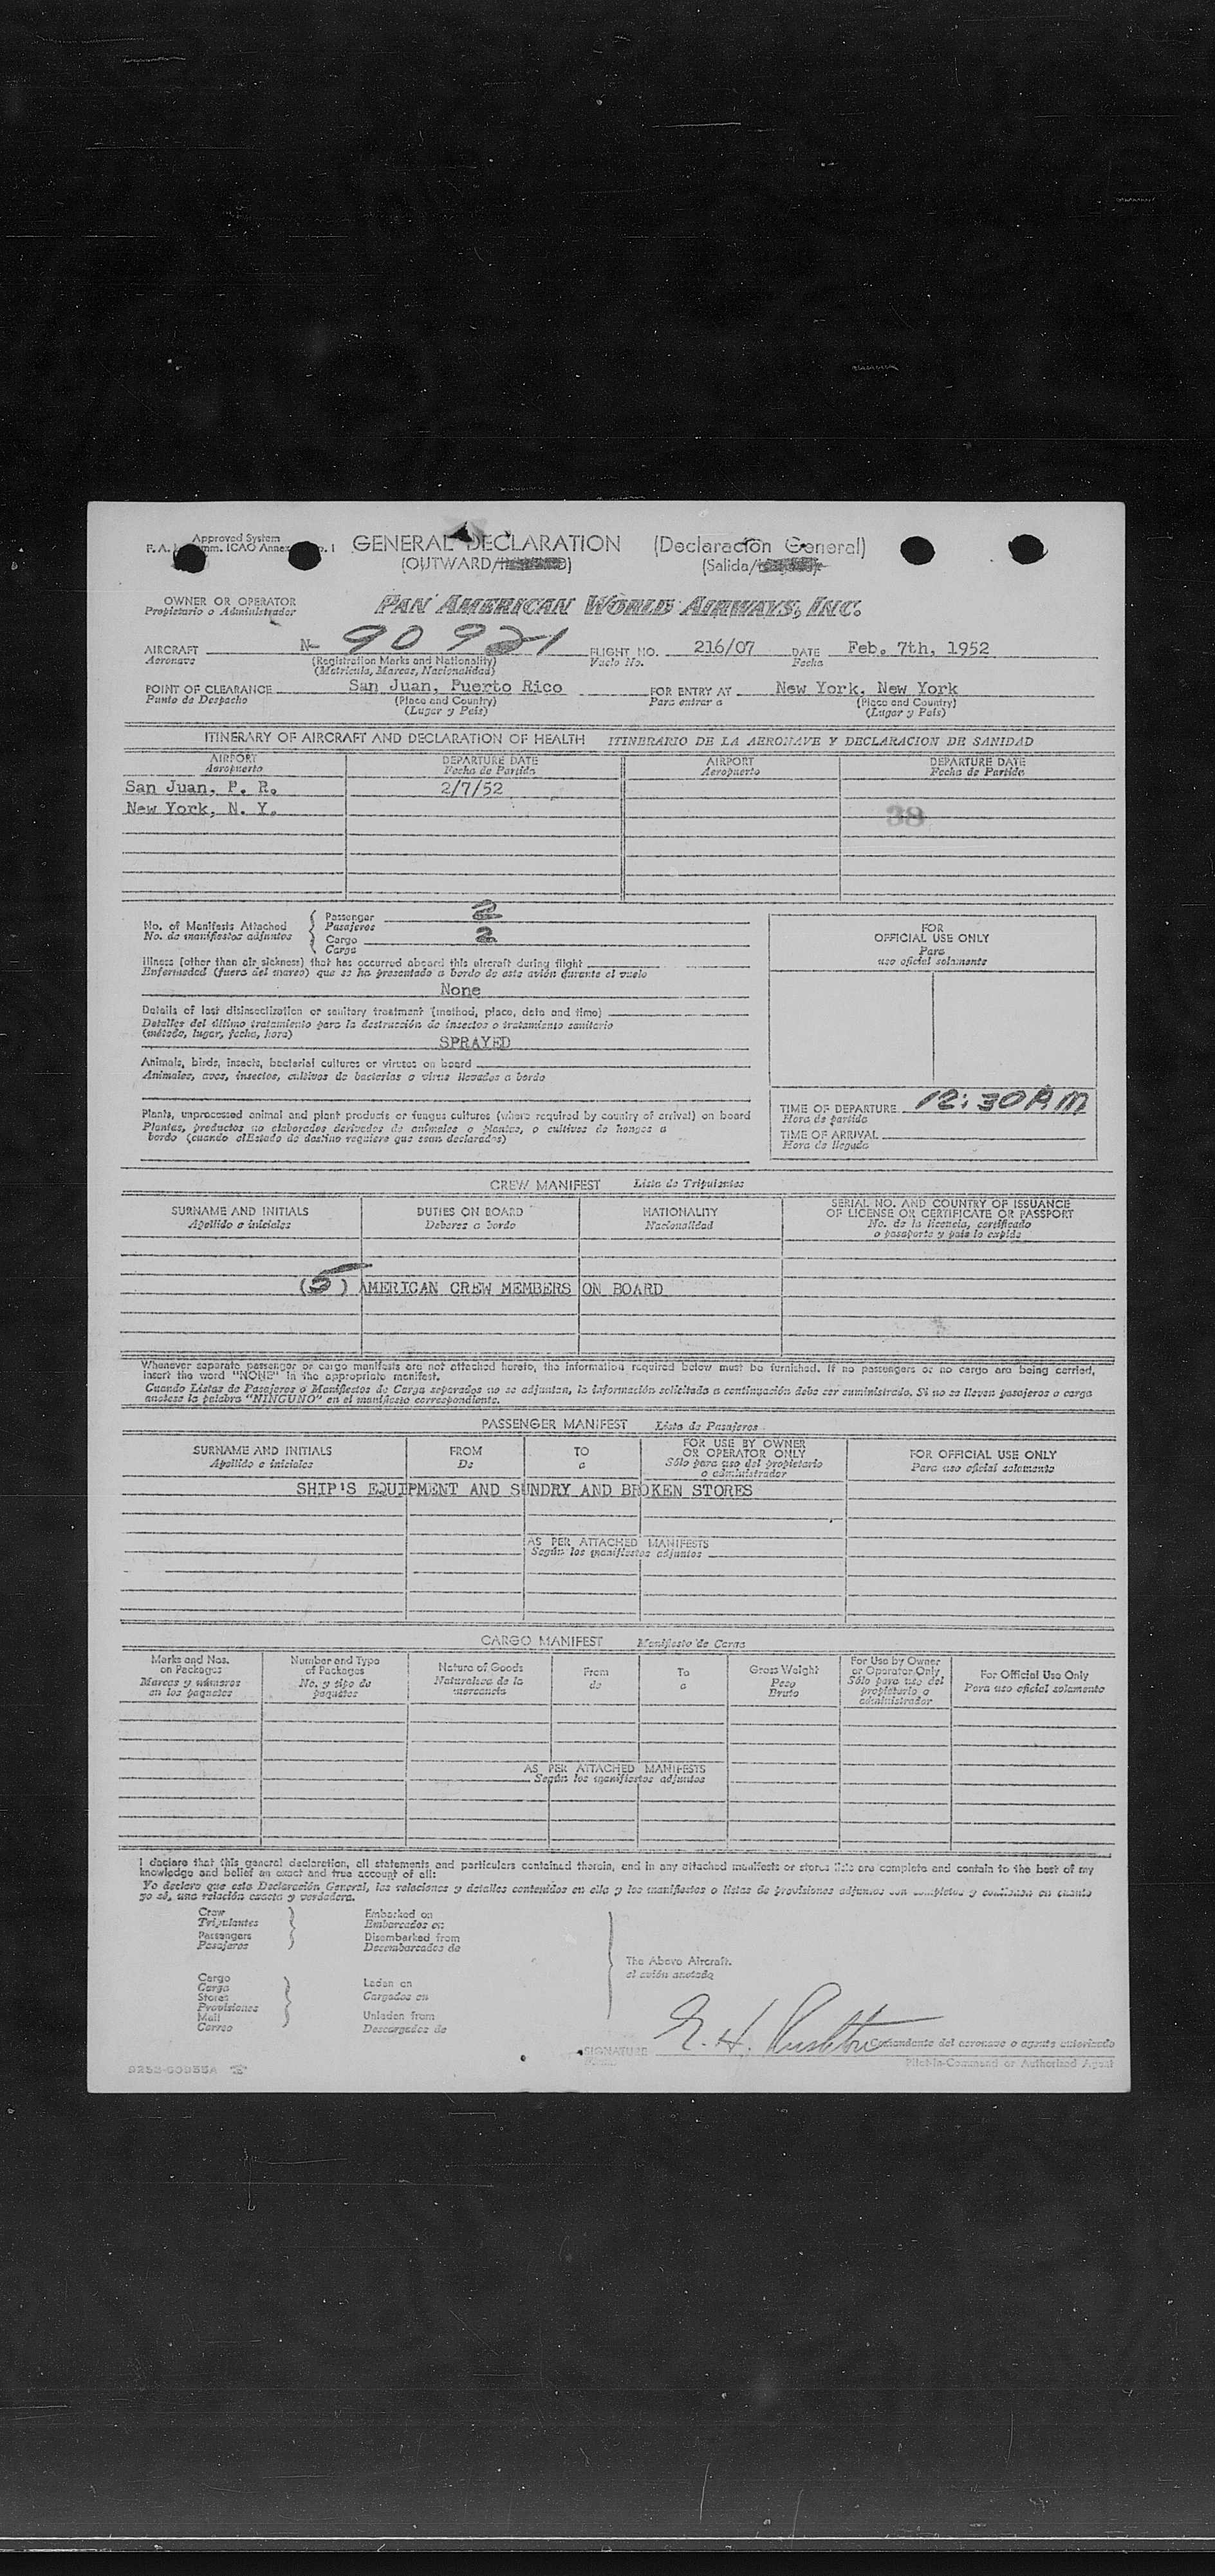 Approved System
GENERAL DECLARATION (Declaración General)
(OUTWARD/ (Salida/
OWNER OR OPERATOR
Propietario o Administrador
PAN AMERICAN WORLD AIRWAYS, INC.
AIRCRAFT N- 90921 FLIGHT NO. 216/07 DATE Feb. 7th, 1952
Aeronave (Registration Marks and Nationality) Vuelo No. Fecha
(Matricula, Marcas, Nacionalidad)
POINT OF CLEARANCE San Juan, Puerto Rico FOR ENTRY AT New York, New York
Punto de Despacho (Place and Country) Para entrar a (Place and Country)
(Lugar y País) (Lugar y País)
ITINERARY OF AIRCRAFT AND DECLARATION OF HEALTH ITINERARIO DE LA AERONAVE Y DECLARACION DE SANIDAD
AIRPORT DEPARTURE DATE AIRPORT DEPARTURE DATE
Aeropuerto Fecha de Partida Aeropuerto Fecha de Partida
San Juan, P. R. 2/7/52
New York, N. Y. 38
No. of Manifests Attached Passenger 2
No. de manifiestos adjuntos Pasajeros
Cargo 2
Carga
Illness (other than air sickness) that has occurred aboard this aircraft during flight
Enfermedad (fuera del mareo) que se ha presentado a bordo de este avión durante el vuelo
None
Details of last disinsectization or sanitary treatment (method, place, date and time)
Detalles del último tratamiento para la destrucción de insectos o tratamiento sanitario
(método, lugar, fecha, hora)
SPRAYED
Animals, birds, insects, bacterial cultures or viruses on board
Animales, aves, insectos, cultivos de bacterias o virus llevados a bordo
Plants, unprocessed animal and plant products or fungus cultures (where required by country of arrival) on board
Plantas, productos no elaborados derivados de animales o plantas, o cultivos de hongos a
bordo (cuando elEstado de destino requiere que sean declarados)
FOR
OFFICIAL USE ONLY
Para
uso oficial solamente
TIME OF DEPARTURE 12:30 AM
Hora de partida
TIME OF ARRIVAL
Hora de llegada
CREW MANIFEST Lista de Tripulantes
SURNAME AND INITIALS DUTIES ON BOARD NATIONALITY SERIAL NO. AND COUNTRY OF ISSUANCE
Apellido e iniciales Deberes a bordo Nacionalidad OF LICENSE OR CERTIFICATE OR PASSPORT
No. de la licencia, certificado
o pasaporte y país lo expide
(5) AMERICAN CREW MEMBERS ON BOARD
Whenever separate passenger or cargo manifests are not attached hereto, the information required below must be furnished. If no passengers or no cargo are being carried,
insert the word "NONE" in the appropriate manifest.
Cuando Listas de Pasajeros o Manifiestos de Carga separados no se adjuntan, la información solicitada a continuación debe ser suministrada. Si no se lleven pasajeros o carga
anótese la palabra "NINGUNO" en el manifiesto correspondiente.
PASSENGER MANIFEST Lista de Pasajeros
SURNAME AND INITIALS FROM TO FOR USE BY OWNER FOR OFFICIAL USE ONLY
Apellido e iniciales De a OR OPERATOR ONLY Para uso oficial solamente
Sólo para uso del propietario
o administrador
SHIP'S EQUIPMENT AND SUNDRY AND BROKEN STORES
AS PER ATTACHED MANIFESTS
Según los manifiestos adjuntos
CARGO MANIFEST Manifiesto de Carga
Marks and Nos. Number and Type Nature of Goods From To Gross Weight For Use by Owner For Official Use Only
on Packages of Packages Naturaleza de la de a Peso or Operator Only Para uso oficial solamente
Marcas y números No. y tipo de mercancía Bruto Sólo para uso del
en los paquetes paquetes propietario o
administrador
AS PER ATTACHED MANIFESTS
Según los manifiestos adjuntos
I declare that this general declaration, all statements and particulars contained therein, and in any attached manifests or stores lists are complete and contain to the best of my
knowledge and belief an exact and true account of all:
Yo declaro que esta Declaración General, las relaciones y detalles contenidos en ella y los manifiestos o listas de provisiones adjuntos son completos y contienen en cuanto
yo sé, una relación exacta y verdadera.
Crew Embarked on
Tripulantes Embarcados en
Passengers Disembarked from
Pasajeros Desembarcados de
The Above Aircraft.
el avión anotado
Cargo Laden on
Carga Cargados en
Stores
Provisiones
Mail Unladen from
Correo Descargados de
SIGNATURE Comandante del aeronave o agente autorizado
Pilot-in-Command or Authorized Agent